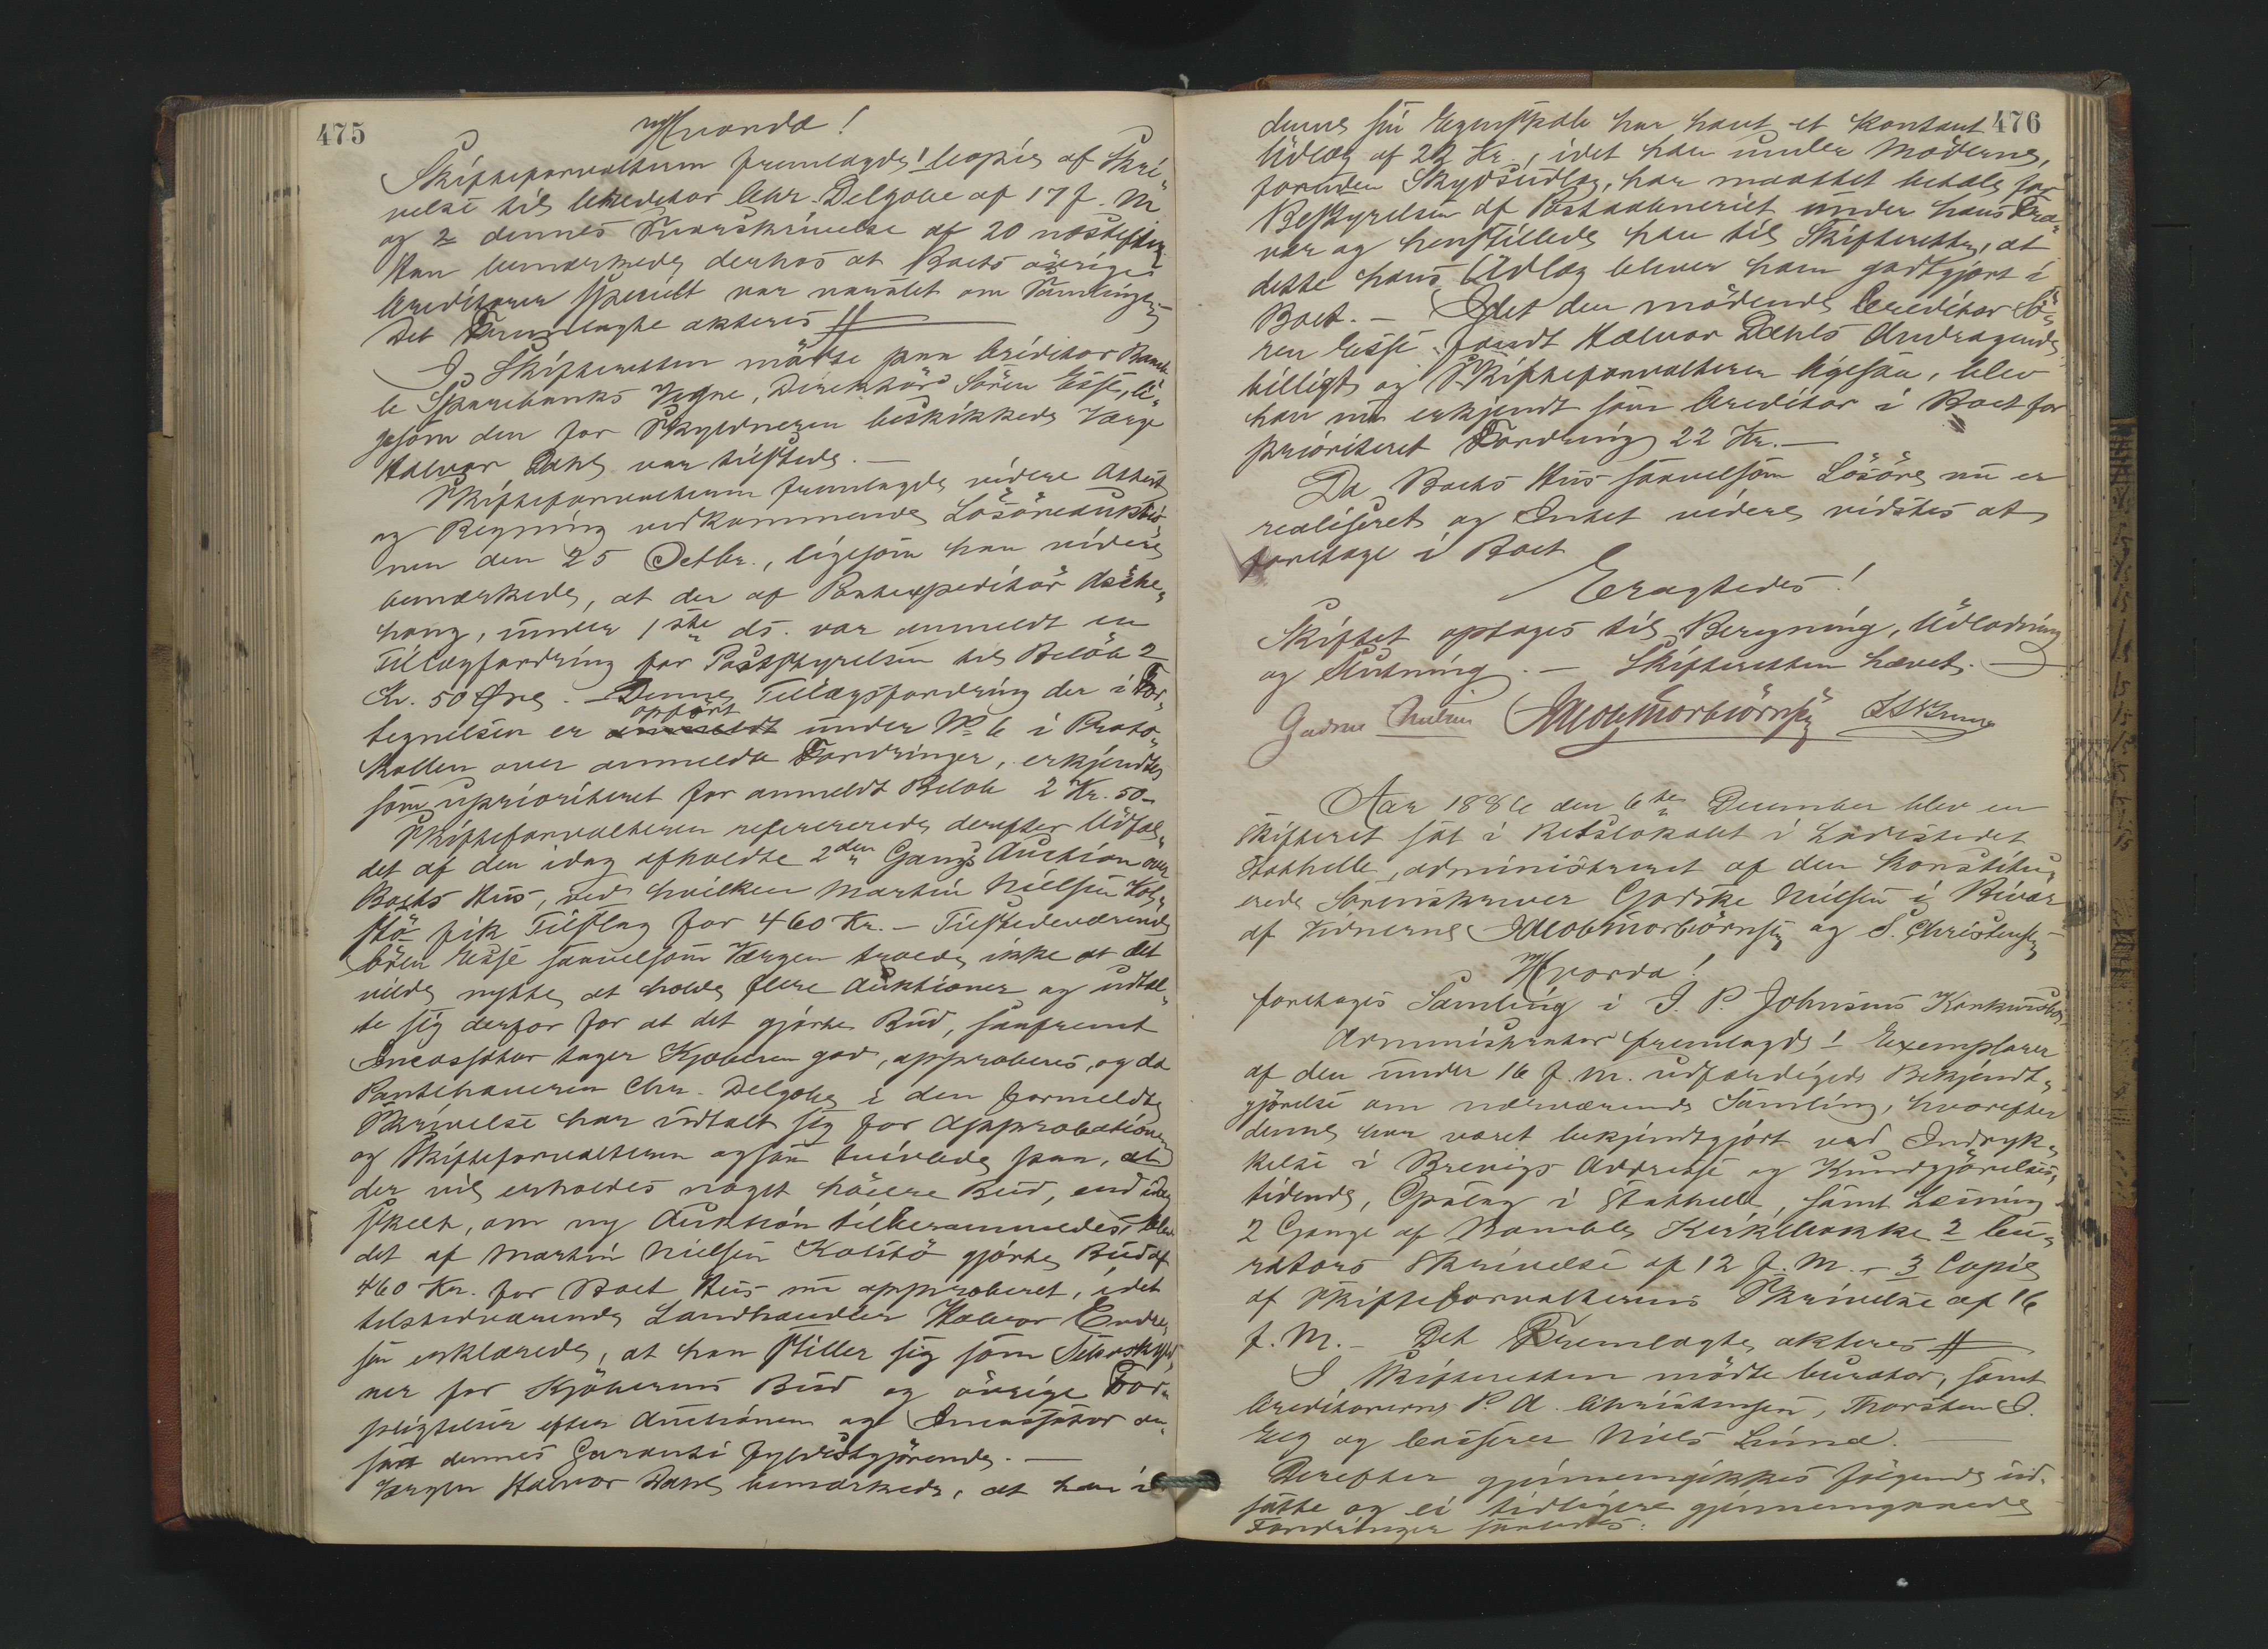 475
Hvorda!
Skifteforvalteren fremlagde 1 Copie af Skri-
velse til Creditor Chr. Delgobe af 17 f. M.
og 2 dennes Svarskrivelse af 20 næstefter.
Han bemærkede derhos at Boets øvrige
Creditorer specielt var varslet om Samlingen.
Det Fremlagte akteres #
I Skifteretten mødte paa Creditor Bamb-
le Sparebanks Vegne, Direktør Sören Esse, li-
gesom den for Skyldneren beskikkede Værge
Halvor Dahl var tilstede. —
Skifteforvalteren fremlagde videre Attest
og Regning vedkommende Lösöreauktio-
nen den 25 Octbr., ligesom han videre
bemærkede, at der af Postexpeditör
haug, under 1ste ds. var anmeldt en
Tillægsfordring for Poststyrelsen til Belöb 2
Kr. 50 Øre. — Denne Tillægsfordring der i For-
tegnelsen er opfört under No 6 i Proto-
kollen over anmeldte Fordringer, erkjendtes
som uprioriteret for anmeldt Belöb 2 Kr. 50 —
Skifteforvalteren refererede derefter Udfal-
det af den idag afholdte 2den Gangs Auction over
Boets Hus, ved hvilken Martin Nielsen Kol-
stö fik Tilslag for 460 Kr. — Tilstedeværende
Sören Esse saavelsom Værgen troede ikke at det
vilde nytte at holde flere Auktioner og udtal-
te sig derfor for at det gjorte Bud, saafremt
Incassator tager Kjøberen god, approberes, og da
Panthaveren Chr. Delgobe i den formeldte
Skrivelse har udtalt sig for Approbationen
og Skifteforvalteren ogsaa tvivlede paa, at
der vil erholdes noget höiere Bud, end idag
skeet, om ny Auktion tilberammedes, blev
det af Martin Nielsen Kolstö gjorte Bud af
460 Kr. for Boet Hus nu approberet, idet
tilstedværende Landhandler Halvor Endre-
sen erklærede, at han stiller sig som Selvskyld-
ner for Kjöberens Bud og övrige For-
pligtelser efter Auctionen og Incassator an-
saa dennes Garanti fyldestgjörende. —
Værgen Halvor Dahl bemærkede, at han i
476
denne sin Egenskab har havt et kontant
Udlæg af 22 Kr., idet han under Møderne,
foruden Skydsudlæg, har maattet betale for
Bestyrelsen af Postaabneriet under hans Fra-
vær og henstillede han til Skifteretten, at
dette hans Udlæg bliver ham godtgjort i
Boet. — Idet den mödende Creditor Sö-
ren Esse fandt Halvor Dahls Andragende
billigt og Skifteforvalteren ligesaa, blev
han nu erkjendt som Creditor i Boet for
prioriteret Fordring 22 Kr. —
Da Boets Hus saavelsom Lösöre nu er
realiseret og Intet videre vidstes at
foretage i Boet
Eragtedes!
Skiftet optages til Beregning, Udlodning
og Slutning. — Skifteretten hævet. —
Nielsen Jacob Thorbiörnsen
Aar 1886 den 6te December blev en
Skifteret sat i Retslokalet i Ladestedet
Stathelle, administreret af den konstitu-
erede Sorenskriver Godske Nielsen i Bivær
af Vidnerne Jacob Thorbiörnsen og S. Christensen
Hvorda!
foretoges Samling i J. P. Johnsens Konkursbo. —
Administrator fremlagde 1 Exemplarer
af den under 16 f. M. udfærdigede Bekjendt-
gjörelse om nærværende Samling, hvorefter
denne har været bekjendtgjört ved Indryk-
kelse i Brevigs Addresse og Kundgjörelses-
tidende, Opslag i Stathelle, samt Læsning
2 Gange af Bamble Kirkebakke 2 Cu-
rators Skrivelse af 12 f. M. — 3 Copie
af Skifteforvalterens Skrivelse af 16
f. M. — Det Fremlagte akteres #
I Skifteretten mödte Curator, samt
Creditorerne P. A. Christensen, Thorsten J.
Eeg og Casserer Niels Lund. —
Derefter gjennemgikkes fölgende ud-
satte og ei tidligere gjennemgaaede
Fordringer saaledes: